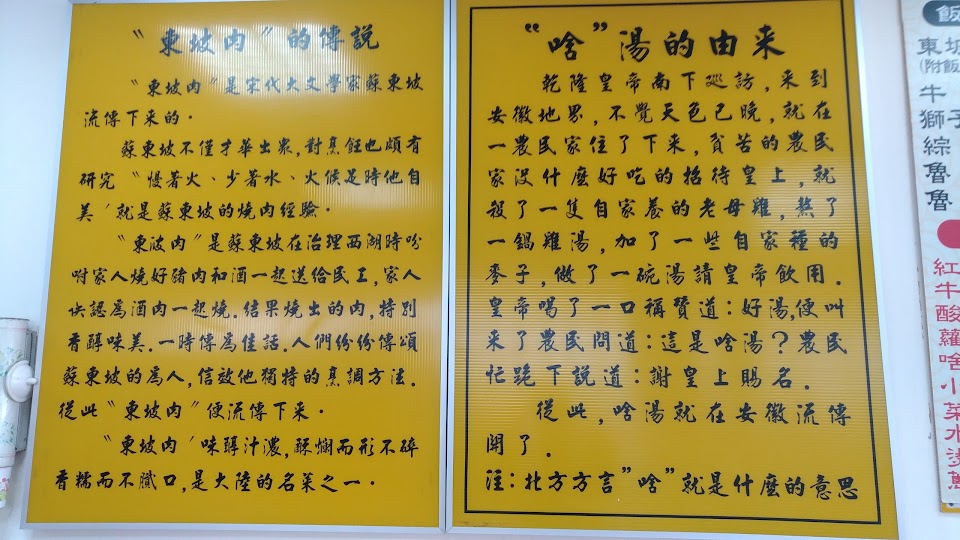 〝東坡肉〞的傳說
〝東坡肉〞是宋代大文學家蘇東坡
流傳下來的．
蘇東坡不僅才華出眾，對烹飪也頗有
研究〝慢著火、少著水、火候足時他自
美〞就是蘇東坡的燒肉經驗．
〝東波肉〞是蘇東坡在治理西湖時吩
咐家人燒好豬肉和酒一起送給民工，家人
误認為酒肉一起燒．結果燒出的肉，特別
香醇味美．一時傳為佳話．人們紛紛傳頌
蘇東坡的為人，信效他獨特的烹調方法．
從此〝東坡肉〞便流傳下來．
〝東坡肉〞味醇汁濃，酥爛而形不碎
香糯而不膩口，是大陸的名菜之一．
“啥”湯的由來
乾隆皇帝南下巡訪，来到
安徽地界，不覺天色已晚，就在
一農民家住了下來，貧苦的農民
家没什麼好吃的招待皇上，就
殺了一隻自家養的老母雞，熬了
一鍋雞湯，加了一些自家種的
麥子，做了一碗湯請皇帝飲用．
皇帝喝了一口稱贊道：好湯，便叫
来了農民問道：這是啥湯？農民
忙跪下說道：謝皇上賜名．
從此，啥湯就在安徽流傳
開了．
注：北方方言”啥”就是什麼的意思
飯
東坡
(附飯
牛
獅子
綜
魯
魯
紅
牛
酸
蘿
啥
小菜
水